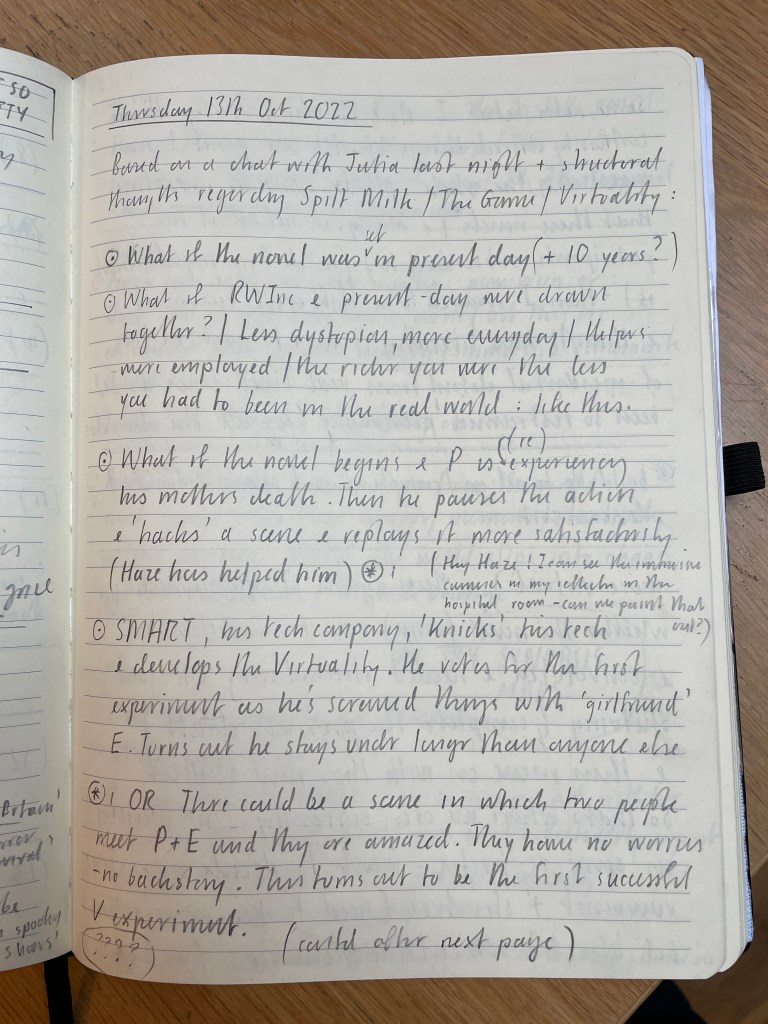 Thursday 13th Oct 2022
Based on a chat with Julia last night + structural
thoughts regarding Spilt Milk / The Game / Virtuality :
set
⊙ What if the novel was in present day (+ 10 years?)
⊙ What if RWInc & present-day were drawn
together? / Less dystopian, more everyday / Helpers
were employed / the richer you were the less
you had to been in the real world : like this.
(re)
⊙ What if the novel begins & P is experiencing
his mothers death. Then he pauses the action
& 'hacks' a scene & replays it more satisfactorily
(Haze has helped him) ⊛ 1
(Hey Haze! I can see the immersive
cameras in my reflection in the
hospital room - can we paint that
out?)
⊙ SMART, his tech company, 'Knicks' his tech
& develops the Virtuality. He votes for the first
experiment as he's screwed things with 'girlfriend'
E. Turns out he stays under longer than anyone else
⊛ 1 OR There could be a scene in which two people
meet P+E and they are amazed. They have no worries
- no backstory. This turns out to be the first successful
V experiment.
????
(contd after next page)
SO
RTY
Britain'
be
spooky